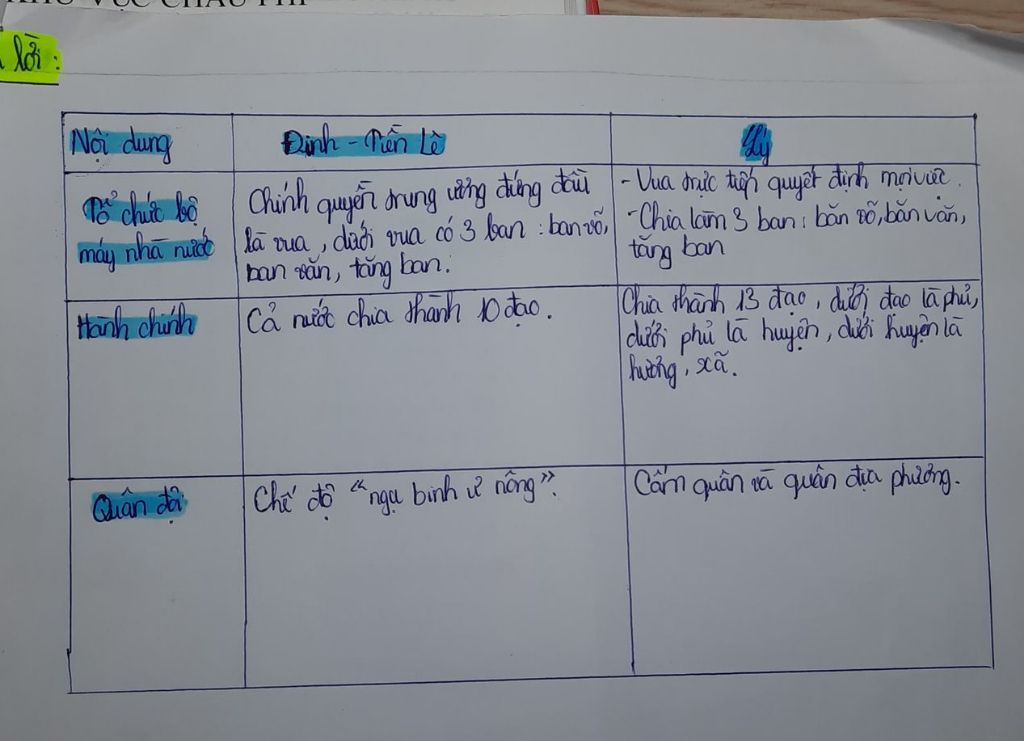 KHU VỰC CHÂU PHI
lời:
Nội dung
Đinh - Tiền Lê
Lý
Tổ chức bộ
máy nhà nước
Chính quyền trung ương đứng đầu
là vua, dưới vua có 3 ban: ban võ,
ban văn, tăng ban.
- Vua trực tiếp quyết định mọi việc.
- Chia làm 3 ban: băn võ, băn văn,
tăng ban
Hành chính
Cả nước chia thành 10 đạo.
Chia thành 13 đạo, dưới đạo là phủ,
dưới phủ là huyện, dưới huyện là
hương, xã.
Quân đội
Chế độ "ngụ binh ư nông".
Cấm quân và quân địa phương.